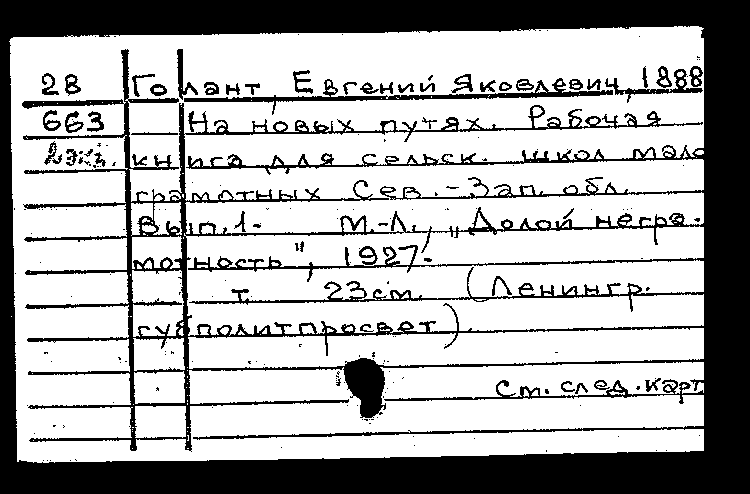 28 Голант, Евгений Яковлевич, 1888
663 На новых путях. Рабочая
2 экз. книга для сельск. школ мало
грамотных Сев.-Зап. обл.
Вып.1- М.-Л., „Долой негра-
мотность", 1927.-
т. 23 см. (Ленингр.
губполитпросвет).
См. след. карт.